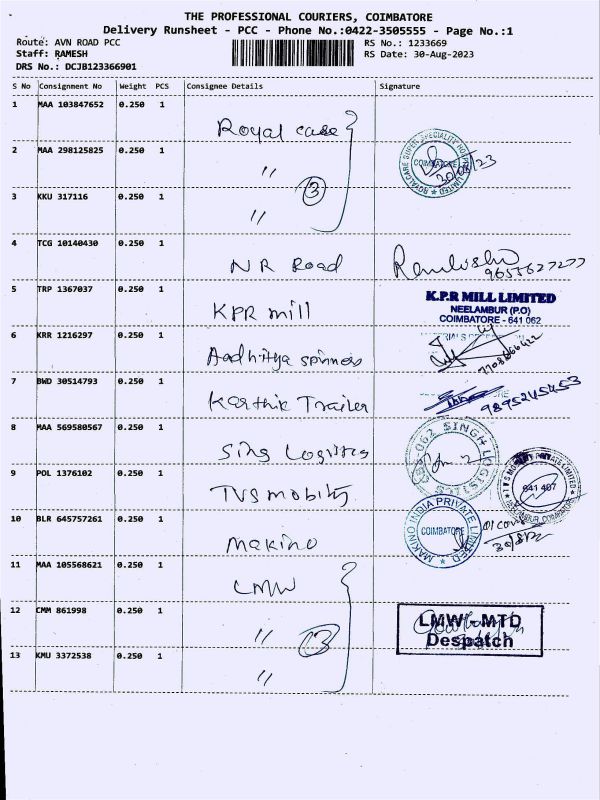 THE PROFESSIONAL COURIERS, COIMBATORE
Delivery Runsheet - PCC - Phone No.:0422-3505555 - Page No.:1
Route: AVN ROAD PCC
RS No.: 1233669
Staff: RAMESH
RS Date: 30-Aug-2023
DRS No.: DCJB123366901
S No Consignment No Weight PCS Consignee Details Signature
1 MAA 103847652 0.250 1
Royal case
2 MAA 298125825 0.250 1
ROYALCARE SUPER SPECIALITY HOSPITAL LIMITED
COIMBATORE
" 3
3 KKU 317116 0.250 1
"
4 TCG 10140430 0.250 1
NR Road
9655627277
5 TRP 1367037 0.250 1
KPR mill
K.P.R MILL LIMITED
NEELAMBUR (P.O)
COIMBATORE - 641 062
6 KRR 1216297 0.250 1
Aadhitya spinners
7 BWD 30514793 0.250 1
Karthik Trailer
8 MAA 569580567 0.250 1
Sing Logistics
9 POL 1376102 0.250 1
TVS mobility
641 407
10 BLR 645757261 0.250 1
Makino
MAKINO INDIA PRIVATE LIMITED
COIMBATORE
11 MAA 105568621 0.250 1
LMW
12 CMM 861998 0.250 1
" 3
LMW - MTD
Despatch
13 KMU 3372538 0.250 1
"